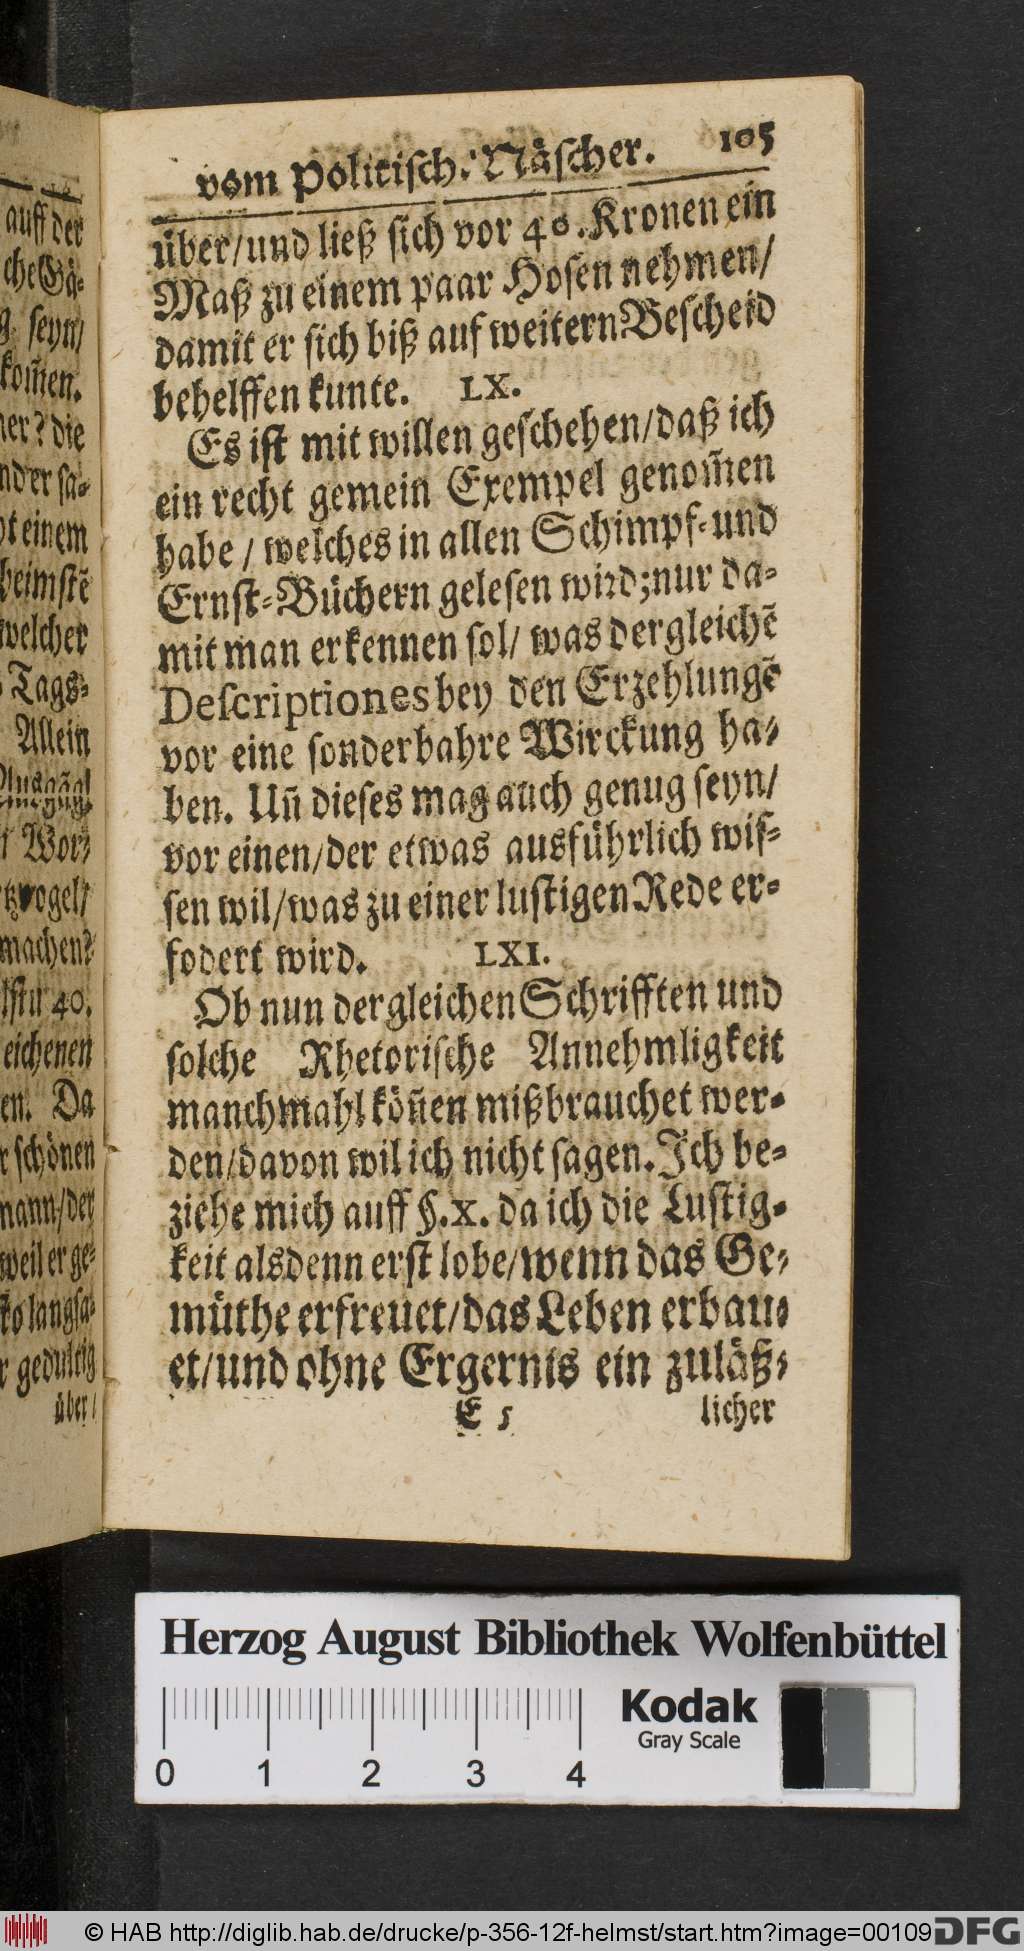 auff der
che Gä-
g seyn/
kom̃en.
ner? die
nd er sa-
ht einem
heimstẽ
welcher
Tags-
Allein
Wor-
tzvogel/
machen?
lstu 40.
eichenen
en. Da
r schönen
mann/der
weil er ge-
ko langsa-
r gedultig
über/
vom Politisch. Näscher. 105
über/und ließ sich vor 40. Kronen ein
Maß zu einem paar Hosen nehmen/
damit er sich biß auf weitern Bescheid
behelffen kunte. LX.
Es ist mit willen geschehen/daß ich
ein recht gemein Exempel genom̃en
habe / welches in allen Schimpf- und
Ernst-Büchern gelesen wird; nur da-
mit man erkennen sol/ was dergleichẽ
Descriptiones bey den Erzehlungẽ
vor eine sonderbahre Wirckung ha-
ben. Uñ dieses mag auch genug seyn/
vor einen/der etwas ausführlich wis-
sen wil/was zu einer lustigen Rede er-
fodert wird. LXI.
Ob nun dergleichen Schrifften und
solche Rhetorische Annehmligkeit
manchmahl köñen mißbrauchet wer-
den/davon wil ich nicht sagen. Ich be-
ziehe mich auff §. X. da ich die Lustig-
keit alsdenn erst lobe/wenn das Ge-
müthe erfreuet/das Leben erbau-
et/und ohne Ergernis ein zuläß-
E 5 licher
Herzog August Bibliothek Wolfenbüttel
0 1 2 3 4
Kodak
Gray Scale
© HAB http://diglib.hab.de/drucke/p-356-12f-helmst/start.htm?image=00109
DFG